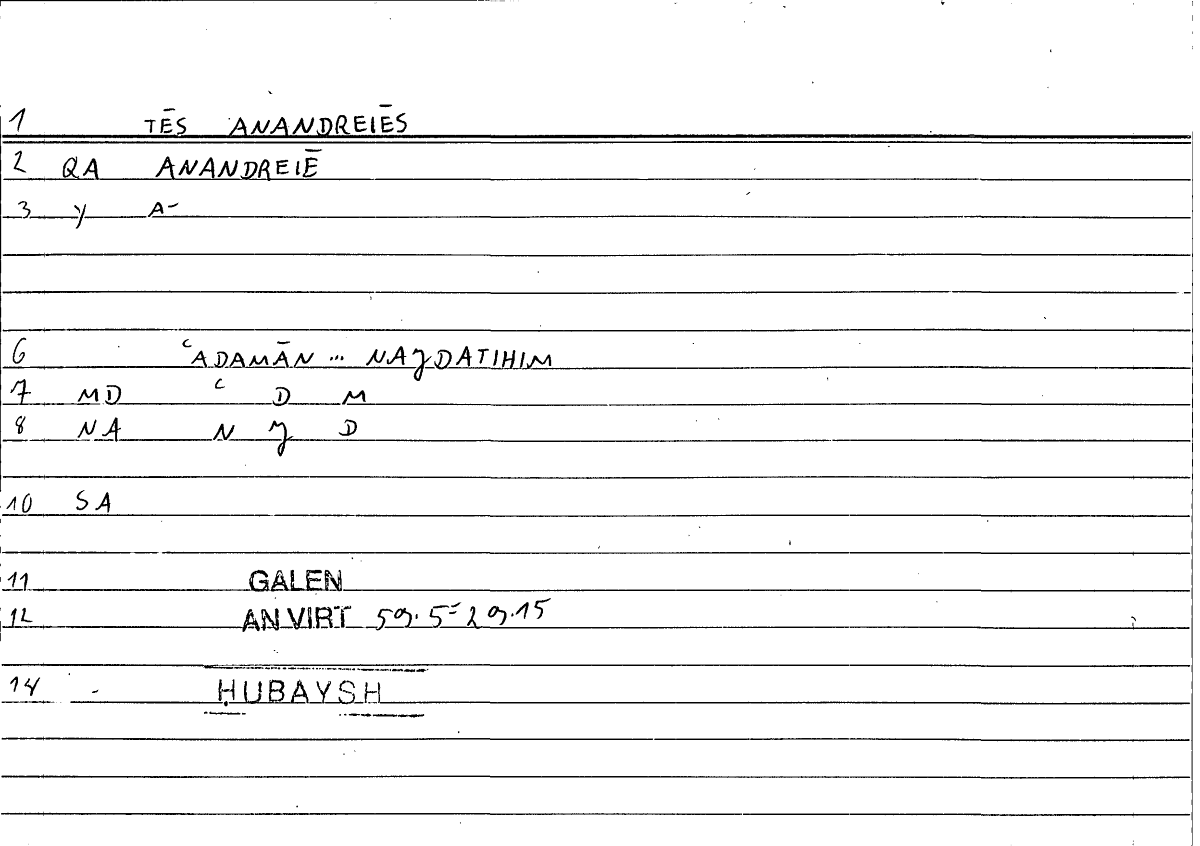 1 TĒS ANANDREIĒS
2 QA ANANDREIĒ
3 y A-
6 ʿADAMĀN ... NAJDATIHIM
7 MD ʿ D M
8 NA N J D
10 SA
11 GALEN
12 AN VIRT 59.5 = 29.15
14 - ḤUBAYSH